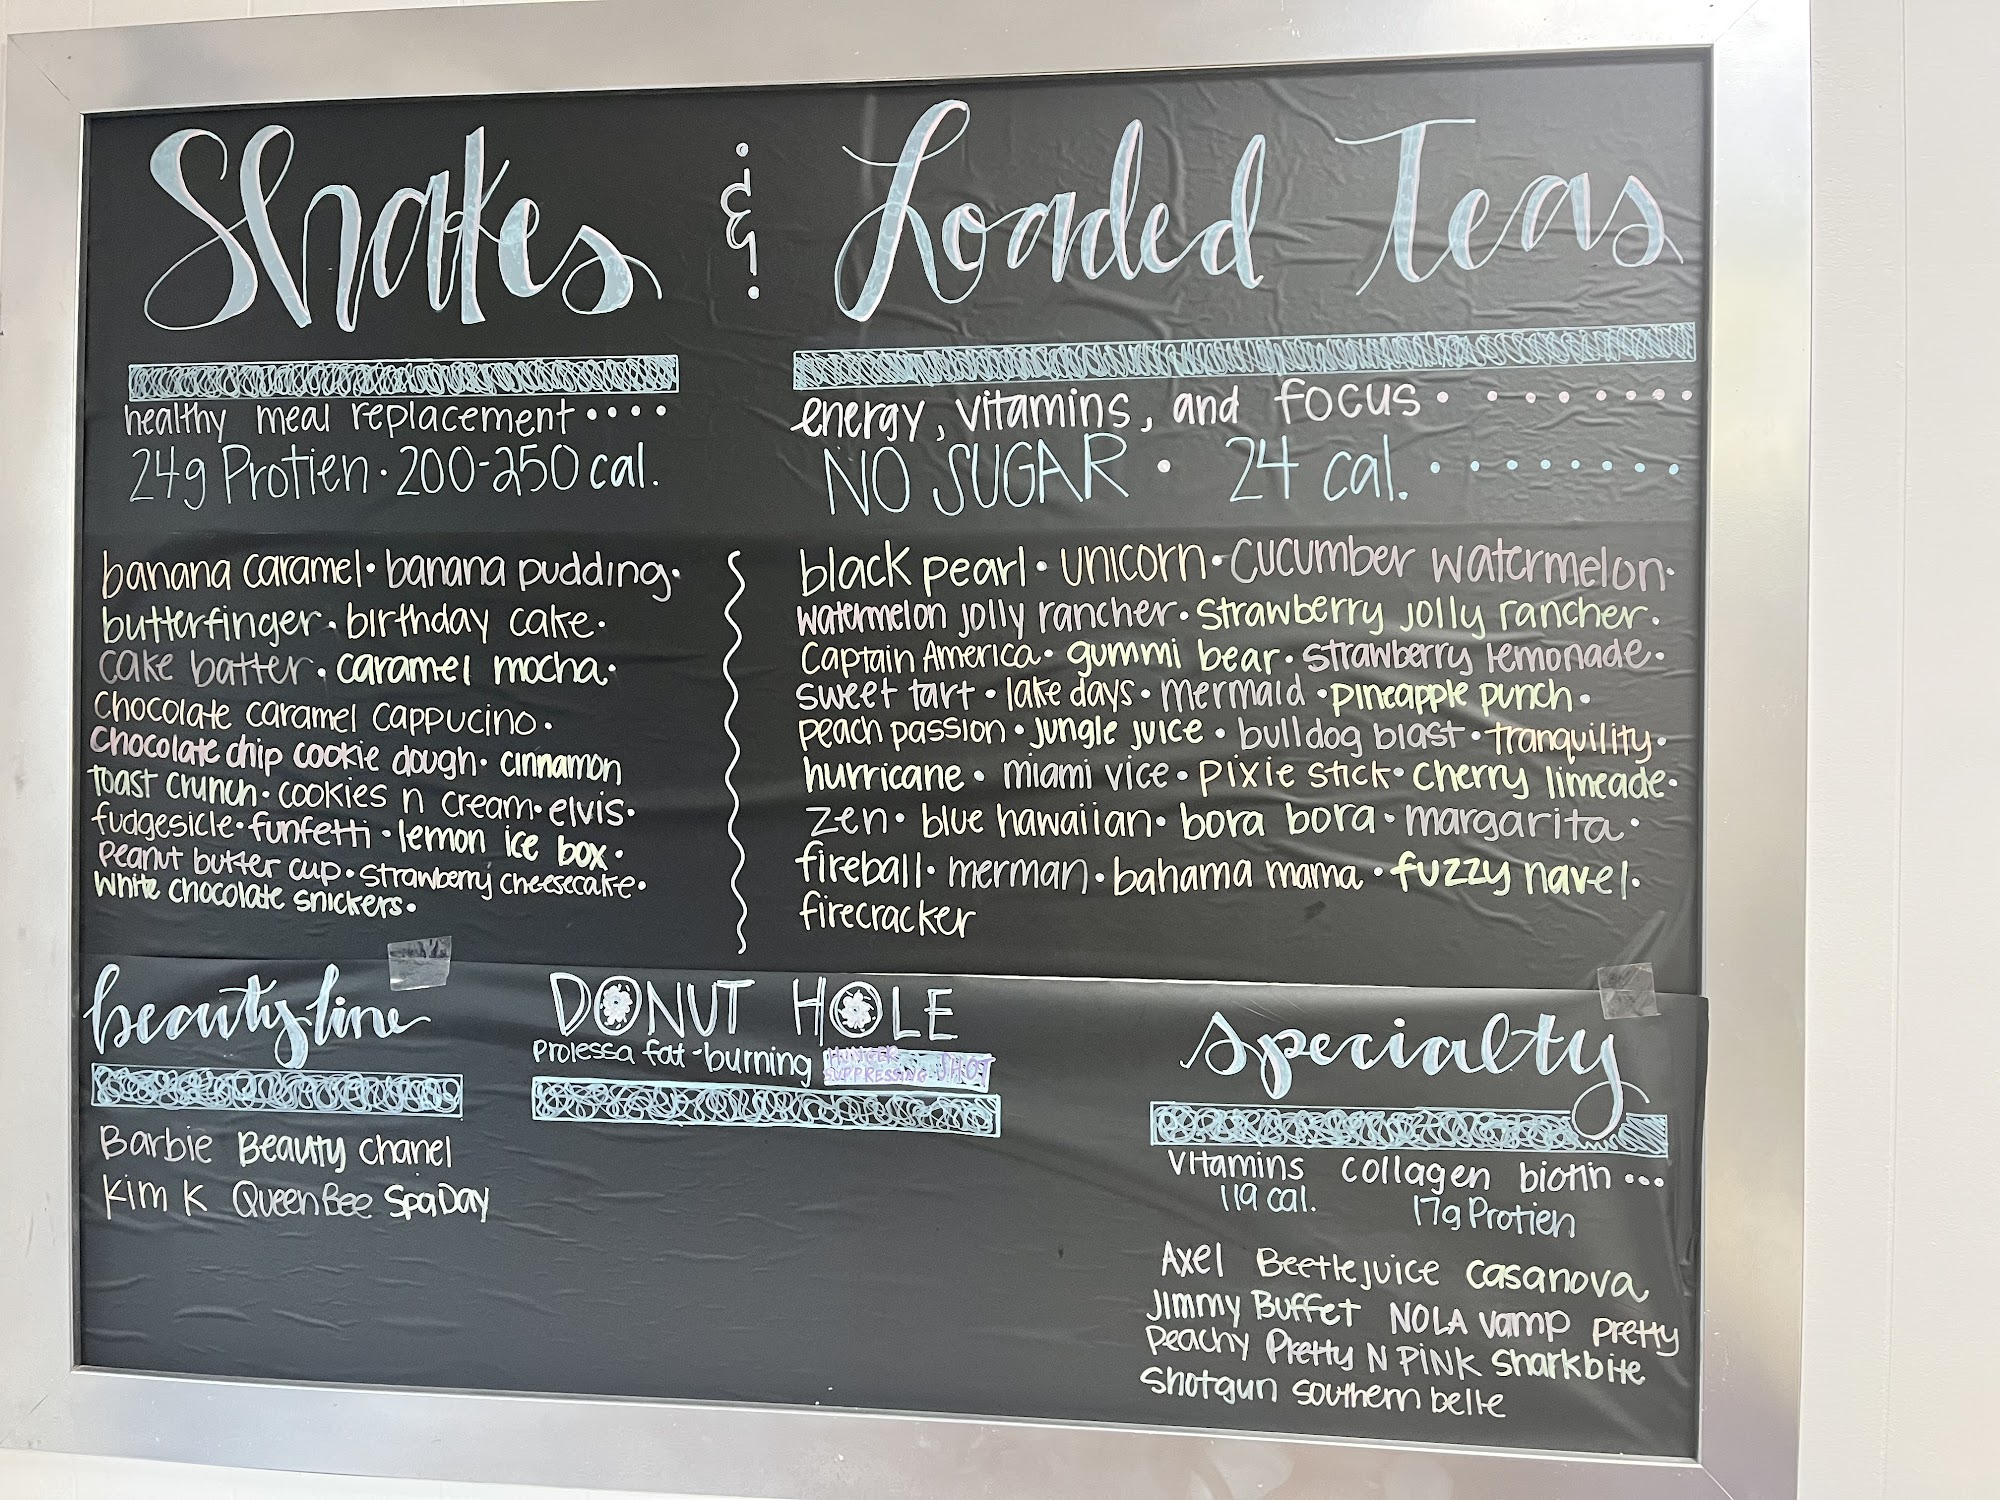 Shakes & Loaded Teas
healthy meal replacement....
24g Protien · 200-250 cal.
energy, vitamins, and focus · · · · · · ·
NO SUGAR · 24 cal. · · · · · · ·
banana caramel · banana pudding ·
butterfinger · birthday cake ·
cake batter · caramel mocha ·
chocolate caramel cappucino ·
chocolate chip cookie dough · cinnamon
toast crunch · cookies n cream · elvis ·
fudgesicle · funfetti · lemon ice box ·
peanut butter cup · strawberry cheesecake ·
white chocolate snickers ·
black pearl · unicorn · cucumber watermelon ·
watermelon jolly rancher · strawberry jolly rancher ·
Captain America · gummi bear · strawberry lemonade ·
sweet tart · lake days · mermaid · pineapple punch ·
peach passion · jungle juice · bulldog blast · tranquility ·
hurricane · miami vice · pixie stick · cherry limeade ·
zen · blue hawaiian · bora bora · margarita ·
fireball · merman · bahama mama · fuzzy navel ·
firecracker
beauty line
Barbie Beauty Chanel
Kim K Queen Bee Spa Day
DONUT HOLE
prolessa fat-burning HUNGER SUPPRESSING SHOT
specialty
vitamins collagen biotin ...
119 cal. 17g Protien
Axel Beetlejuice Casanova
Jimmy Buffet NOLA vamp pretty
peachy Pretty N PINK Sharkbite
Shotgun southern belle